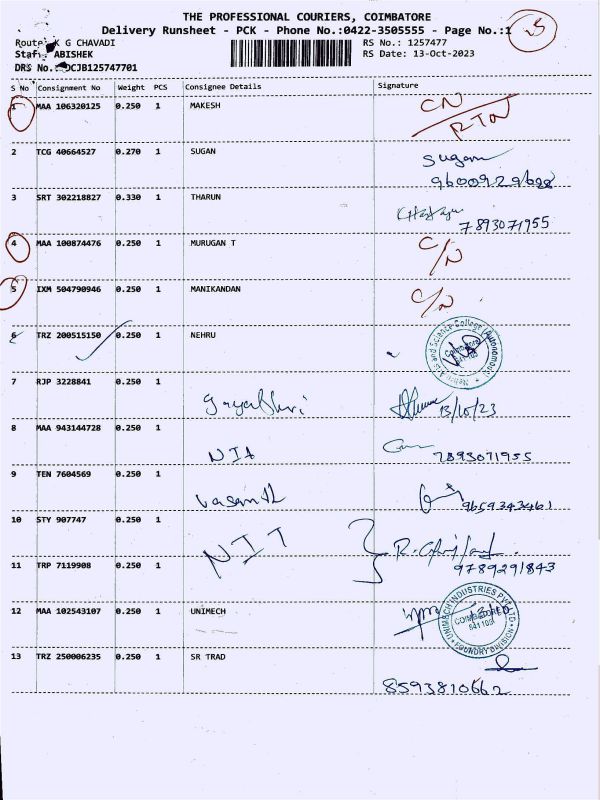 THE PROFESSIONAL COURIERS, COIMBATORE
Delivery Runsheet - PCK - Phone No.:0422-3505555 - Page No.:1
Route: K G CHAVADI RS No.: 1257477
Staff: ABISHEK RS Date: 13-Oct-2023
DRS No.: DCJB125747701
S No Consignment No Weight PCS Consignee Details Signature
1 MAA 106320125 0.250 1 MAKESH CN
RTN
2 TCG 40664527 0.270 1 SUGAN Sugan
3 SRT 302218827 0.330 1 THARUN
7893071955
4 MAA 100874476 0.250 1 MURUGAN T C/N
5 IXM 504790946 0.250 1 MANIKANDAN C/N
6 TRZ 200515150 0.250 1 NEHRU
Nehru Arts and Science College (Autonomous)
Coimbatore
641 105
7 RJP 3228841 0.250 1 13/10/23
8 MAA 943144728 0.250 1
NIA 7893071955
9 TEN 7604569 0.250 1
Vasanth 9659343461
10 STY 907747 0.250 1
NIT
11 TRP 7119908 0.250 1 9789291843
12 MAA 102543107 0.250 1 UNIMECH
UNIMECH INDUSTRIES PVT LTD
COIMBATORE
641 105
FOUNDRY DIVISION
13 TRZ 250006235 0.250 1 SR TRAD
8593810662